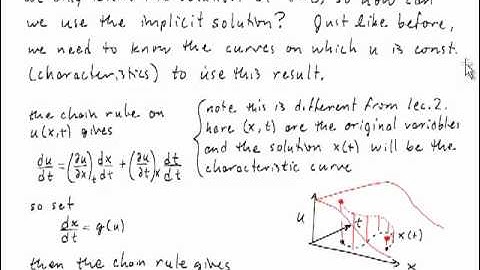 we use the implicit solution? Just like before,
we need to know the curves on which u is const.
(characteristics) to use this result.
the chain rule on
u(x,t) gives
du/dt = (∂u/∂x)_t dx/dt + (∂u/∂t)_x dt/dt
note this is different from lec. 2.
here (x,t) are the original variables
and the solution x(t) will be the
characteristic curve
so set
dx/dt = g(u)
u
t
x(t)
x
then the chain rule gives